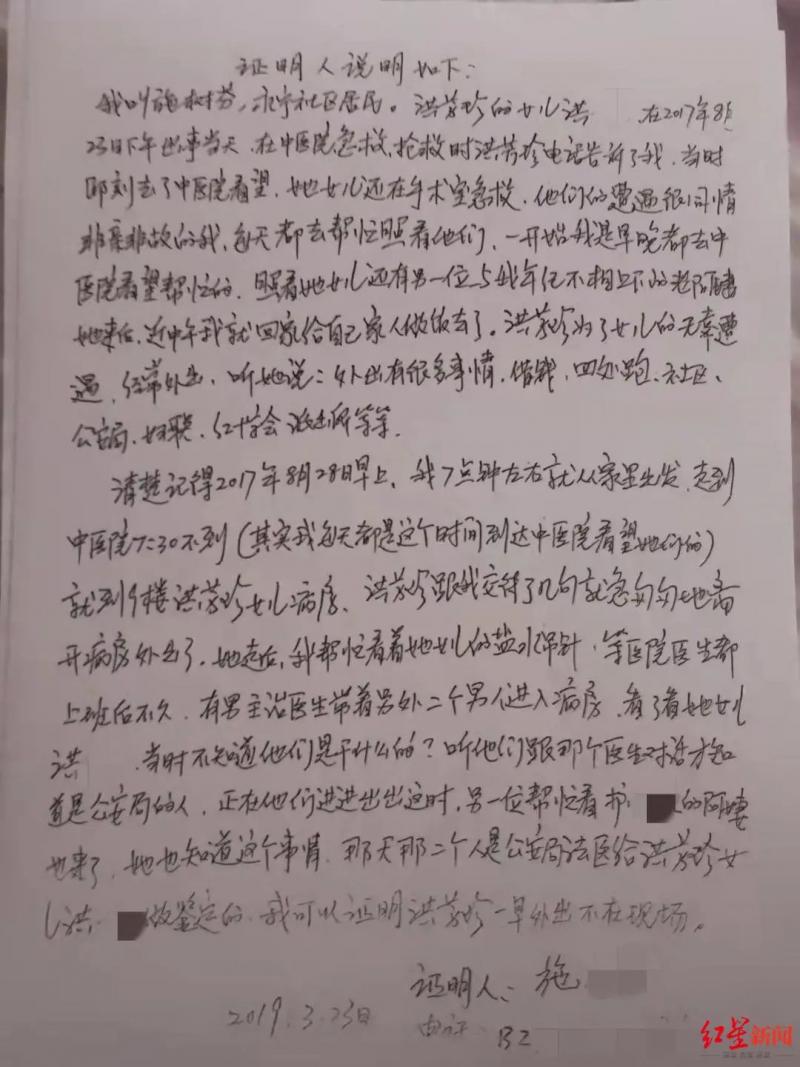 证明人说明如下：
我叫施 芬，永宁社区居民。洪芳珍的女儿洪 在2017年8月
23日下午出事当天，在中医院急救，抢救时洪芳珍电话告诉了我，当时
即刻去了中医院看望，她女儿还在手术室急救，他们的遭遇很同情
非亲非故的我，每天都去帮忙照看他们，一开始我是早晚都去中
医院看望帮忙的，照看她女儿还有另一位与我年纪不相上下的老阿姨
她来后，近中午我就回家给自己家人做饭去了。洪芳珍为了女儿的无辜遭
遇，经常外出，听她说：外出有很多事情，借钱，四处跑、社区、
公安局、妇联、红十字会派出所等等。
清楚记得2017年8月28日早上，我7点钟左右就从家里出发，走到
中医院7:30不到（其实我每天都是这个时间到达中医院看望她们的）
就到9楼洪芳珍女儿病房、洪芳珍跟我交待了几句就急匆匆地离
开病房外出了，她走后，我帮忙看着她女儿的盐水吊针，等医院医生都
上班后不久，有男主治医生带着另外二个男人进入病房，看了看她女儿
洪 当时不知道他们是干什么的？听他们跟那个医生对话才知
道是公安局的人，正在他们进进出出这时，另一位帮忙看护 的阿姨
也来了，她也知道这个事情，那天那二个人是公安局法医给洪芳珍女
儿洪 做鉴定的，我可以证明洪芳珍一早外出不在现场。
证明人：施
2019.3.23日
电话 132
红星新闻